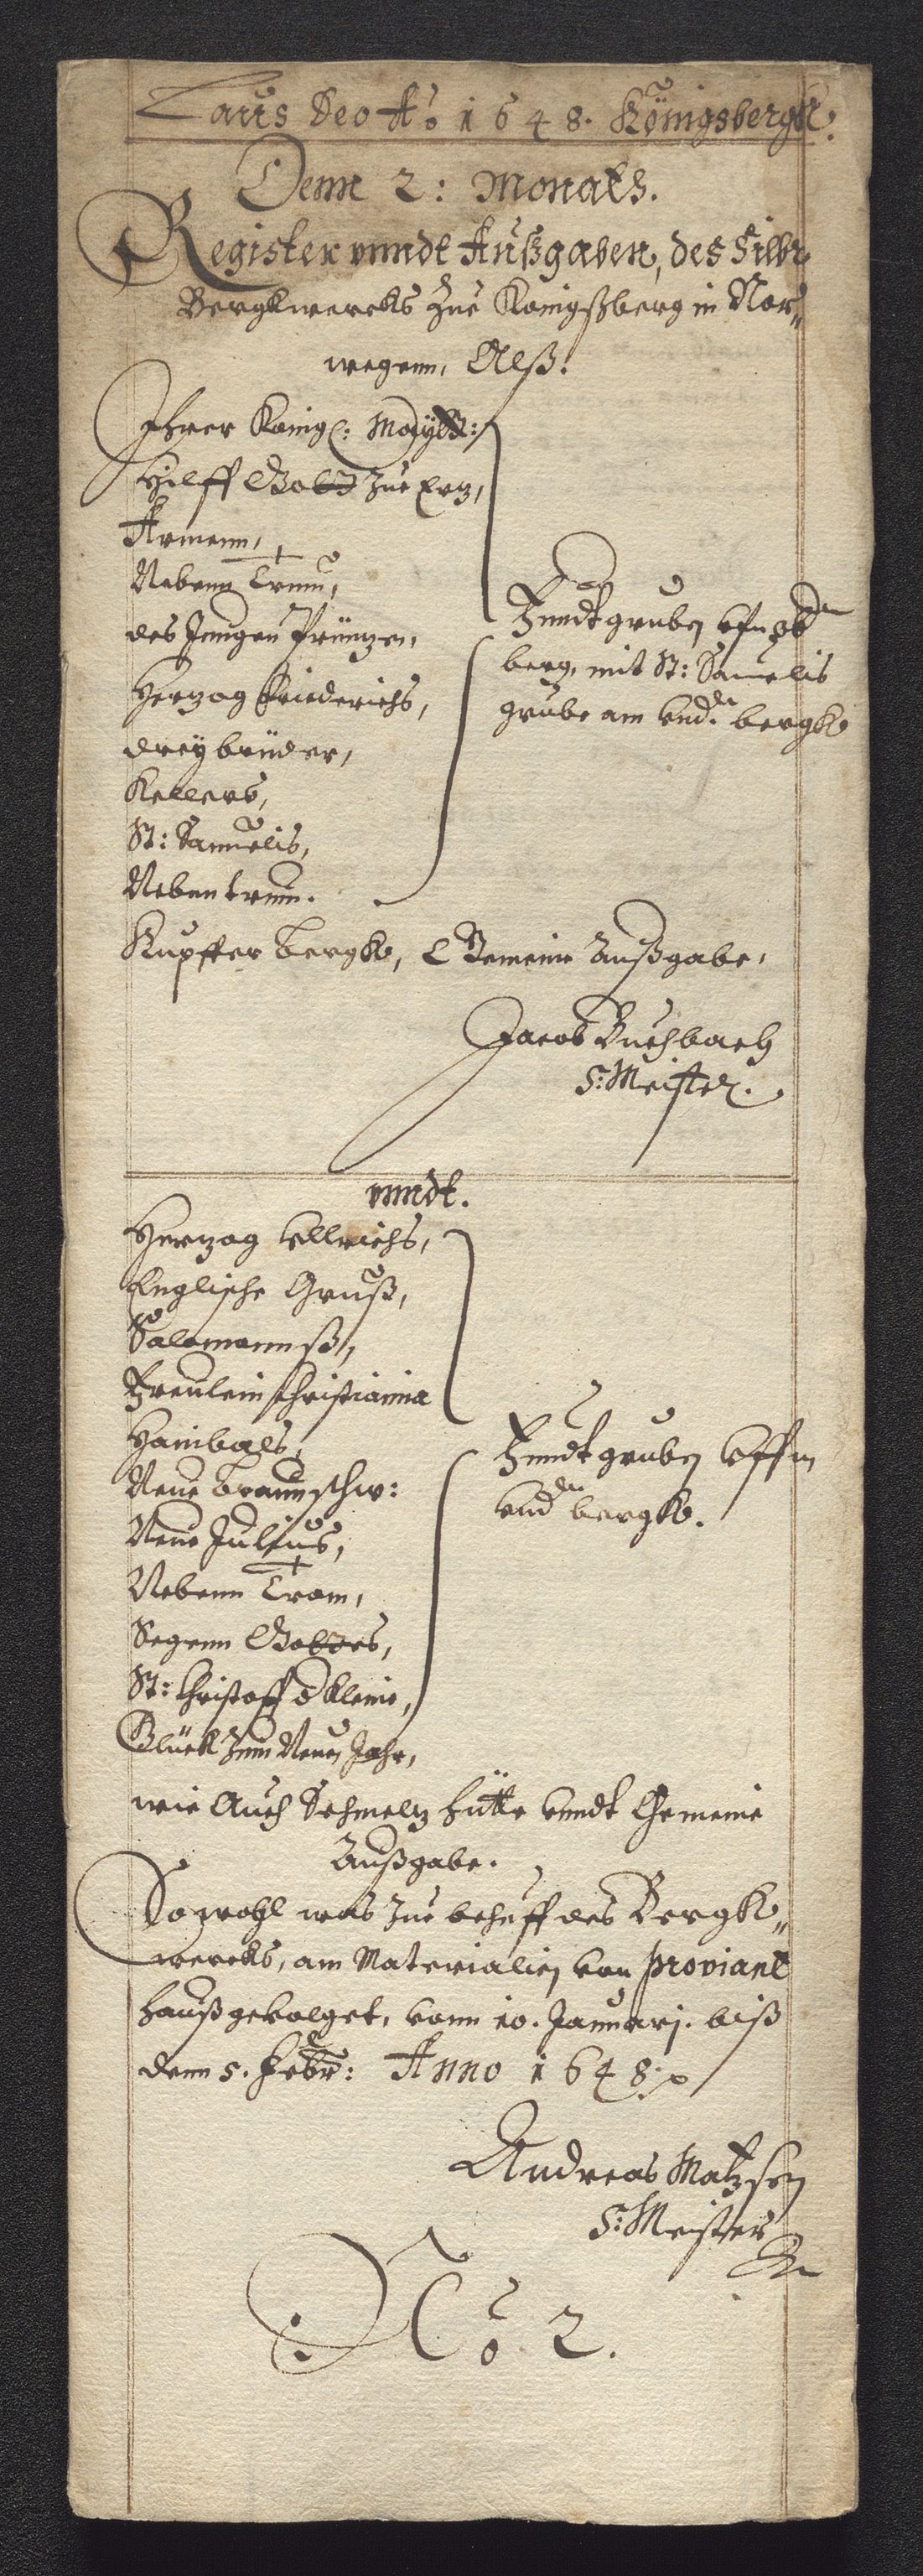 Laus Deo Aō 1648. Königsbergk:
Denn 2: Monats.
Register unndt Außgaben, des Silbr
Bergkwercks zue Konigßberg in Nor„
wegenn, Alß.
Ihrer Königl: Maytt:
Hilff Gottes zue Erz,
Armenn,
Nebenn Trum,
des Jungen Printzen,
Herzog Friederichs,
dreybrüder,
Kellers,
St: Samuelis,
Neben trum.
Fundtgruben ufn ob
berg, mit St: Samuelis
grube am undn bergk
Kupffer bergk, Gemeine Außgabe,
Jacob Buchbach
S: Meister.
unndt.
Herzog Ullrichs,
Englische Gruß,
Salomannß,
Freulein Christianna
Hanibals,
Neue Braunschw:
Neue Julius,
Nebenn Trom,
Segenn Gottes,
St: Christoff d kleine,
Glück zum Neuen Jahr,
Fundtgruben uffm
undn bergk.
wie Auch Schmeltz hütte unndt Gemeine
Außgabe.
Sowohl was zue behuff des Bergk„
wercks, am Materialien von proviant
hauß gevolget, vonn 10. Januarj. biß
denn 5. Febr: Anno 1648.
Andreas Matzsen
S: Meister
No 2.